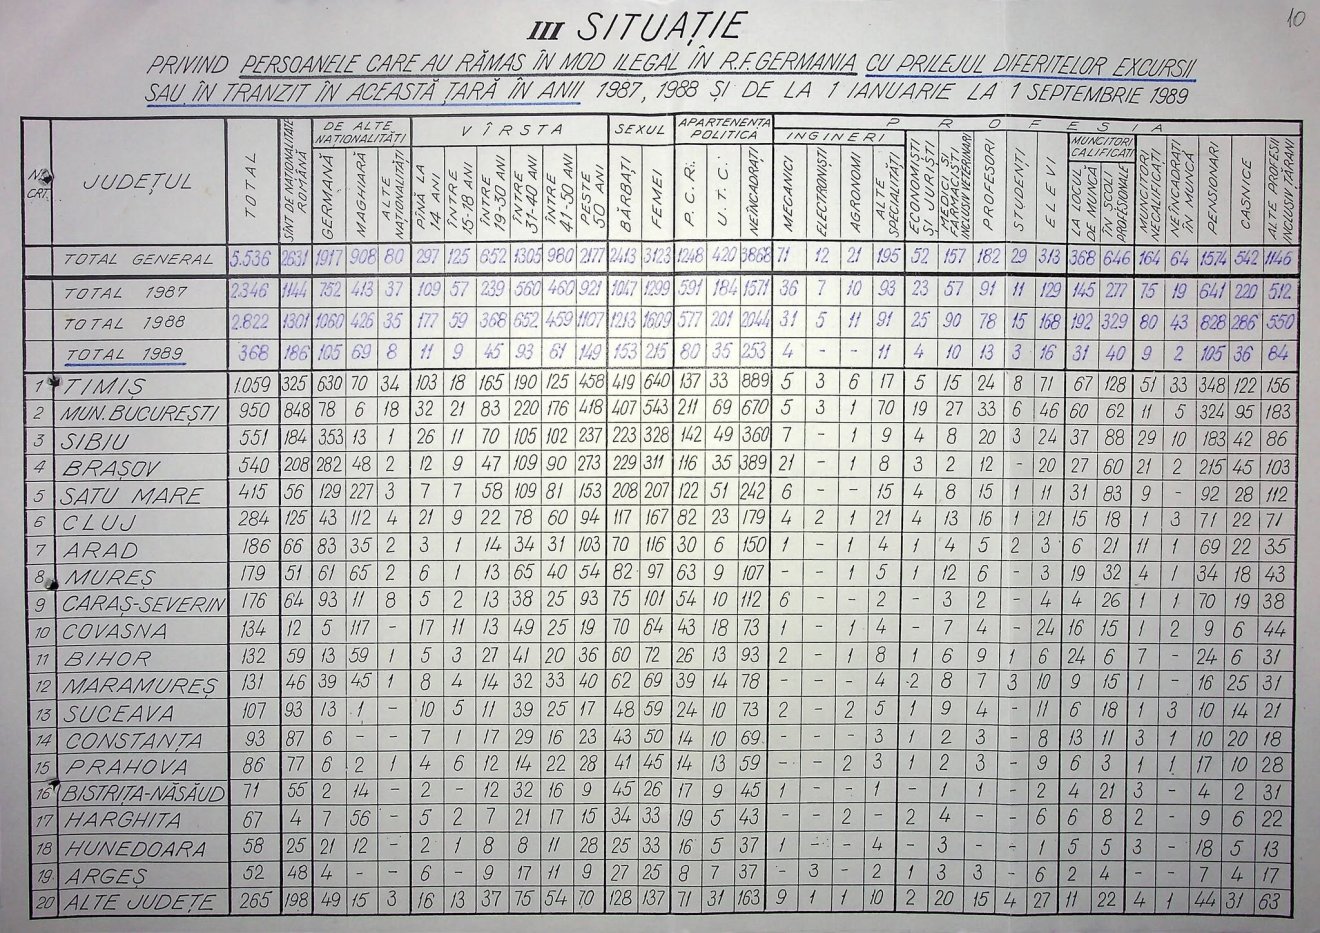 10
III SITUAȚIE
PRIVIND PERSOANELE CARE AU RĂMAS ÎN MOD ILEGAL ÎN R.F. GERMANIA CU PRILEJUL DIFERITELOR EXCURSII
SAU ÎN TRANZIT ÎN ACEASTĂ ȚARĂ ÎN ANII 1987, 1988 ȘI DE LA 1 IANUARIE LA 1 SEPTEMBRIE 1989
NR. CRT. JUDEȚUL TOTAL SÎNT DE NAȚIONALITATE ROMÂNĂ DE ALTE NAȚIONALITĂȚI VÎRSTA SEXUL APARTENENȚA POLITICA PROFESIA
GERMANĂ MAGHIARĂ ALTE NAȚIONALITĂȚI PÎNĂ LA 14 ANI ÎNTRE 15-18 ANI ÎNTRE 19-30 ANI ÎNTRE 31-40 ANI ÎNTRE 41-50 ANI PESTE 50 ANI BĂRBAȚI FEMEI P.C.R. U.T.C. NEÎNCADRAȚI INGINERI MECANICI ELECTRONIȘTI AGRONOMI ALTE SPECIALITĂȚI ECONOMIȘTI ȘI JURIȘTI MEDICI ȘI FARMACIȘTI INCLUSIV VETERINARI PROFESORI STUDENȚI ELEVI MUNCITORI CALIFICAȚI LA LOCUL DE MUNCĂ ÎN ȘCOLI PROFESIONALE MUNCITORI NECALIFICAȚI NEÎNCADRAȚI ÎN MUNCĂ PENSIONARI CASNICE ALTE PROFESII INCLUSIV ȚĂRANI
TOTAL GENERAL 5.536 2631 1917 908 80 297 125 652 1305 980 2177 2413 3123 1248 420 3868 71 12 21 195 52 157 182 29 313 368 646 164 64 1574 542 1146
TOTAL 1987 2.346 1144 752 413 37 109 57 239 560 460 921 1047 1299 591 184 1571 36 7 10 93 23 57 91 11 129 145 277 75 19 641 220 512
TOTAL 1988 2.822 1301 1060 426 35 177 59 368 652 459 1107 1213 1609 577 201 2044 31 5 11 91 25 90 78 15 168 192 329 80 43 828 286 550
TOTAL 1989 368 186 105 69 8 11 9 45 93 61 149 153 215 80 35 253 4 - - 11 4 10 13 3 16 31 40 9 2 105 36 84
1 TIMIȘ 1.059 325 630 70 34 103 18 165 190 125 458 419 640 137 33 889 5 3 6 17 5 15 24 8 71 67 128 51 33 348 122 156
2 MUN. BUCUREȘTI 950 848 78 6 18 32 21 83 220 176 418 407 543 211 69 670 5 3 1 70 19 27 33 6 46 60 62 11 5 324 95 183
3 SIBIU 551 184 353 13 1 26 11 70 105 102 237 223 328 142 49 360 7 - 1 9 4 8 20 3 24 37 88 29 10 183 42 86
4 BRAȘOV 540 208 282 48 2 12 9 47 109 90 273 229 311 116 35 389 21 - 1 8 3 2 12 - 20 27 60 21 2 215 45 103
5 SATU MARE 415 56 129 227 3 7 7 58 109 81 153 208 207 122 51 242 6 - - 15 4 8 15 1 11 31 83 9 - 92 28 112
6 CLUJ 284 125 43 112 4 21 9 22 78 60 94 117 167 82 23 179 4 2 1 21 4 13 16 1 21 15 18 1 3 71 22 71
7 ARAD 186 66 83 35 2 3 1 14 34 31 103 70 116 30 6 150 1 - 1 4 1 4 5 2 3 6 21 11 1 69 22 35
8 MUREȘ 179 51 61 65 2 6 1 13 65 40 54 82 97 63 9 107 - - 1 5 1 12 6 - 3 19 32 4 1 34 18 43
9 CARAȘ-SEVERIN 176 64 93 11 8 5 2 13 38 25 93 75 101 54 10 112 6 - - 2 - 3 2 - 4 4 26 1 1 70 19 38
10 COVASNA 134 12 5 117 - 17 11 13 49 25 19 70 64 43 18 73 1 - 1 4 - 7 4 - 24 16 15 1 2 9 6 44
11 BIHOR 132 59 13 59 1 5 3 27 41 20 36 60 72 26 13 93 2 - 1 8 1 6 9 1 6 24 6 7 - 24 6 31
12 MARAMUREȘ 131 46 39 45 1 8 4 14 32 33 40 62 69 39 14 78 - - - 4 2 8 7 3 10 9 15 1 - 16 25 31
13 SUCEAVA 107 93 13 1 - 10 5 11 39 25 17 48 59 24 10 73 2 - 2 5 1 9 4 - 11 6 18 1 3 10 14 21
14 CONSTANȚA 93 87 6 - - 7 1 17 29 16 23 43 50 14 10 69 - - - 3 1 2 3 - 8 13 11 3 1 10 20 18
15 PRAHOVA 86 77 6 2 1 4 6 12 14 22 28 41 45 14 13 59 - - 2 3 1 2 3 - 9 6 3 1 1 17 10 28
16 BISTRIȚA-NĂSĂUD 71 55 2 14 - 2 - 12 32 16 9 45 26 17 9 45 1 - - 1 - 1 1 - 2 4 21 3 - 4 2 31
17 HARGHITA 67 4 7 56 - 5 2 7 21 17 15 34 33 19 5 43 - - 2 - 2 4 - - 6 6 8 2 - 9 6 22
18 HUNEDOARA 58 25 21 12 - 2 1 8 8 11 28 25 33 16 5 37 1 - - 4 - 3 - - 1 5 5 3 - 18 5 13
19 ARGEȘ 52 48 4 - - 6 - 9 17 11 9 27 25 8 7 37 - 3 - 2 1 3 3 - 6 2 4 - - 7 4 17
20 ALTE JUDEȚE 265 198 49 15 3 16 13 37 75 54 70 128 137 71 31 163 9 1 1 10 2 20 15 4 27 11 22 4 1 44 31 63